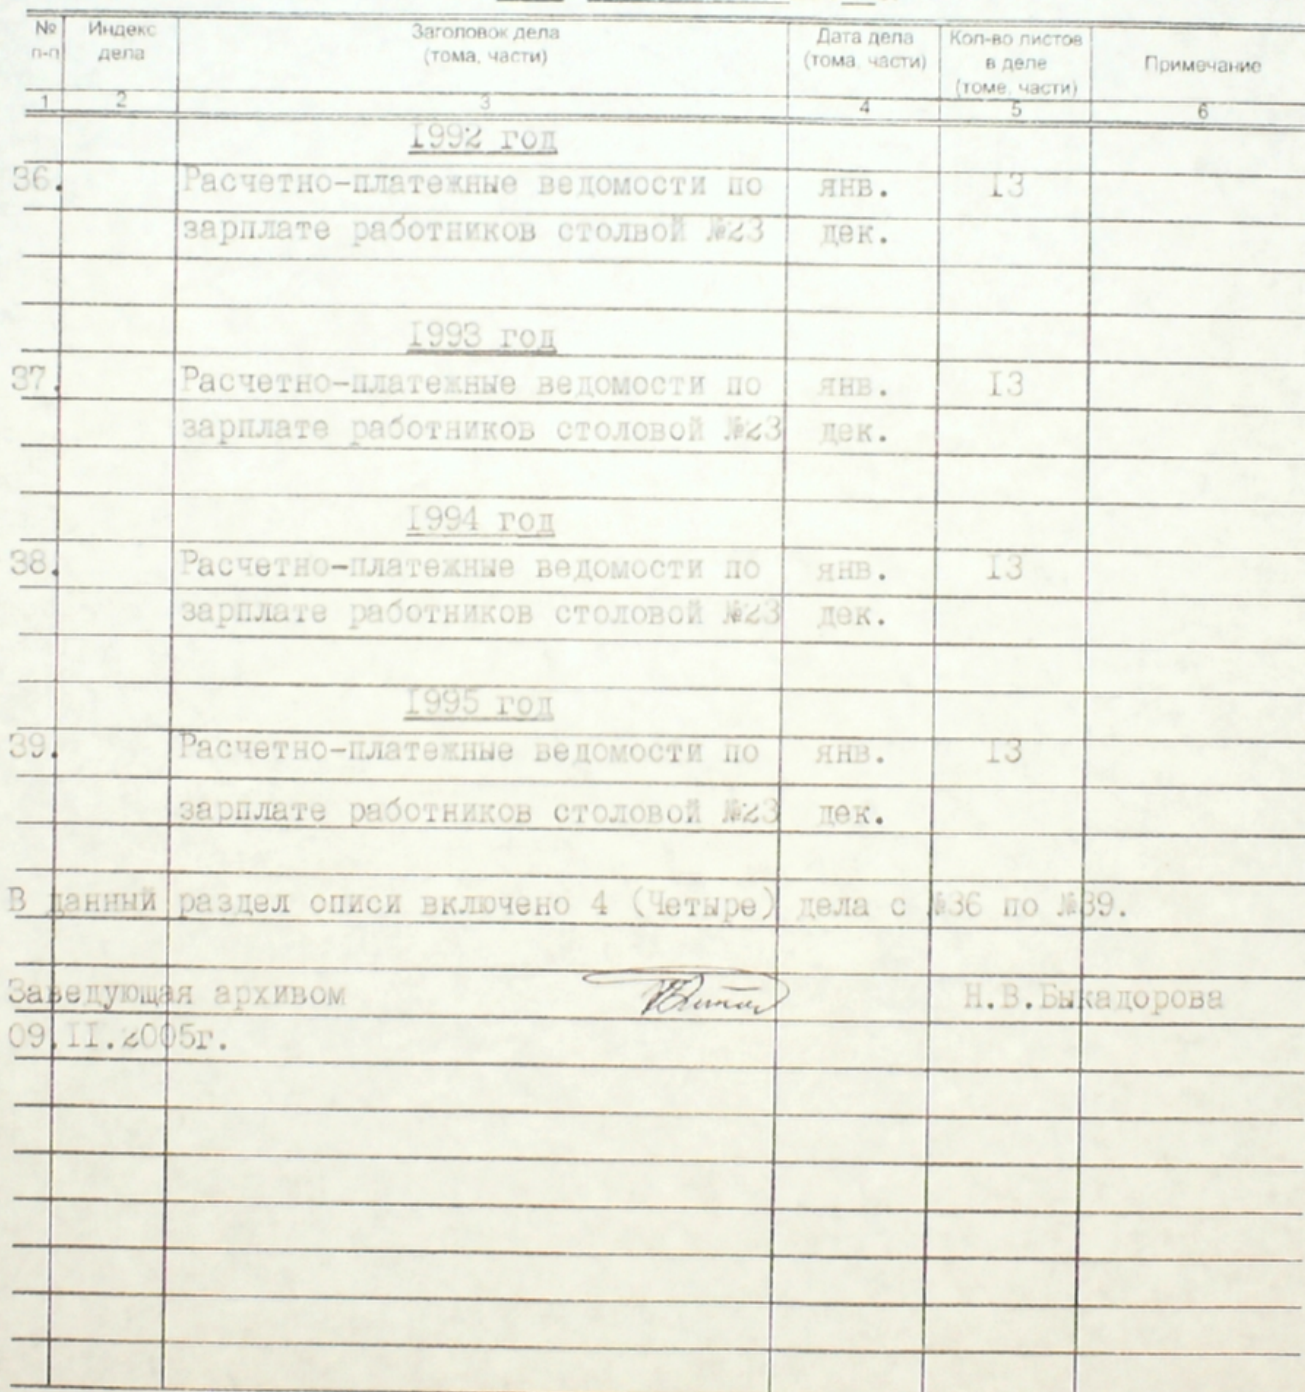 № п-п Индекс дела Заголовок дела (тома, части) Дата дела (тома, части) Кол-во листов в деле (томе, части) Примечание
1 2 3 4 5 6
1992 год
36. Расчетно-платежные ведомости по янв. 13
зарплате работников столвой №23 дек.
1993 год
37. Расчетно-платежные ведомости по янв. 13
зарплате работников столовой №23 дек.
1994 год
38. Расчетно-платежные ведомости по янв. 13
зарплате работников столовой №23 дек.
1995 год
39. Расчетно-платежные ведомости по янв. 13
зарплате работников столовой №23 дек.
В данный раздел описи включено 4 (Четыре) дела с №36 по №39.
Заведующая архивом Н.В.Быкадорова
09.II.2005г.